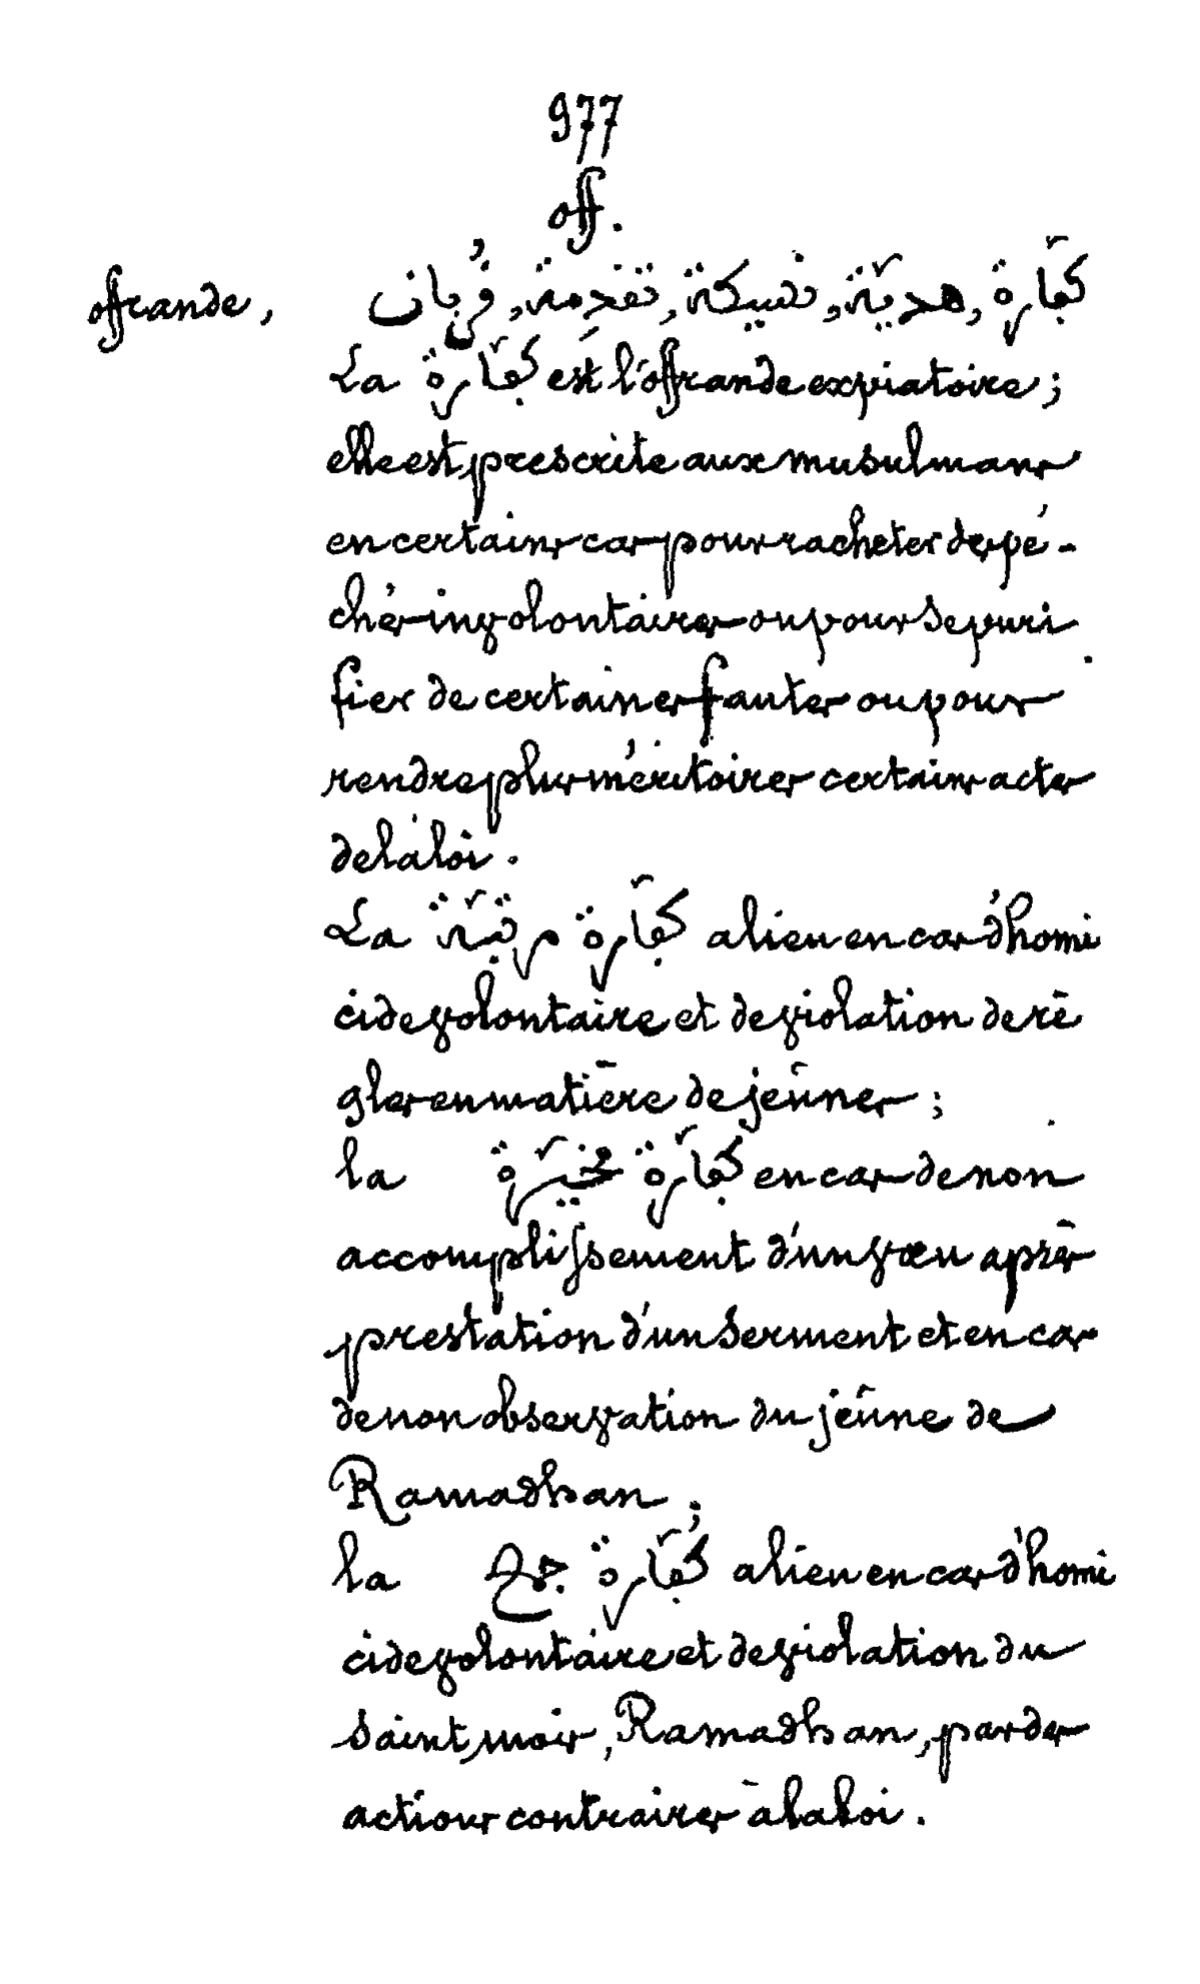 977
off.
offrande, كفّارة, هديّة, نسيكة, تقدِمة, قُربان
La كفّارة est l'offrande expiatoire;
elle est prescrite aux musulmans
en certains cas pour racheter des pé-
chés involontaires ou pour se puri
fier de certaines fautes ou pour
rendre plus méritoires certains actes
de la loi.
La كفّارة مرتّبة a lieu en cas d'homi
cide volontaire et de violation de rè
gles en matière de jeûnes;
la كفّارة مخيّرة en cas de non
accomplissement d'un vœu après
prestation d'un serment et en cas
de non observation du jeûne de
Ramadhan;
la كفّارة جمع a lieu en cas d'homi
cide volontaire et de violation du
saint mois, Ramadhan, par des
actions contraires à la loi.